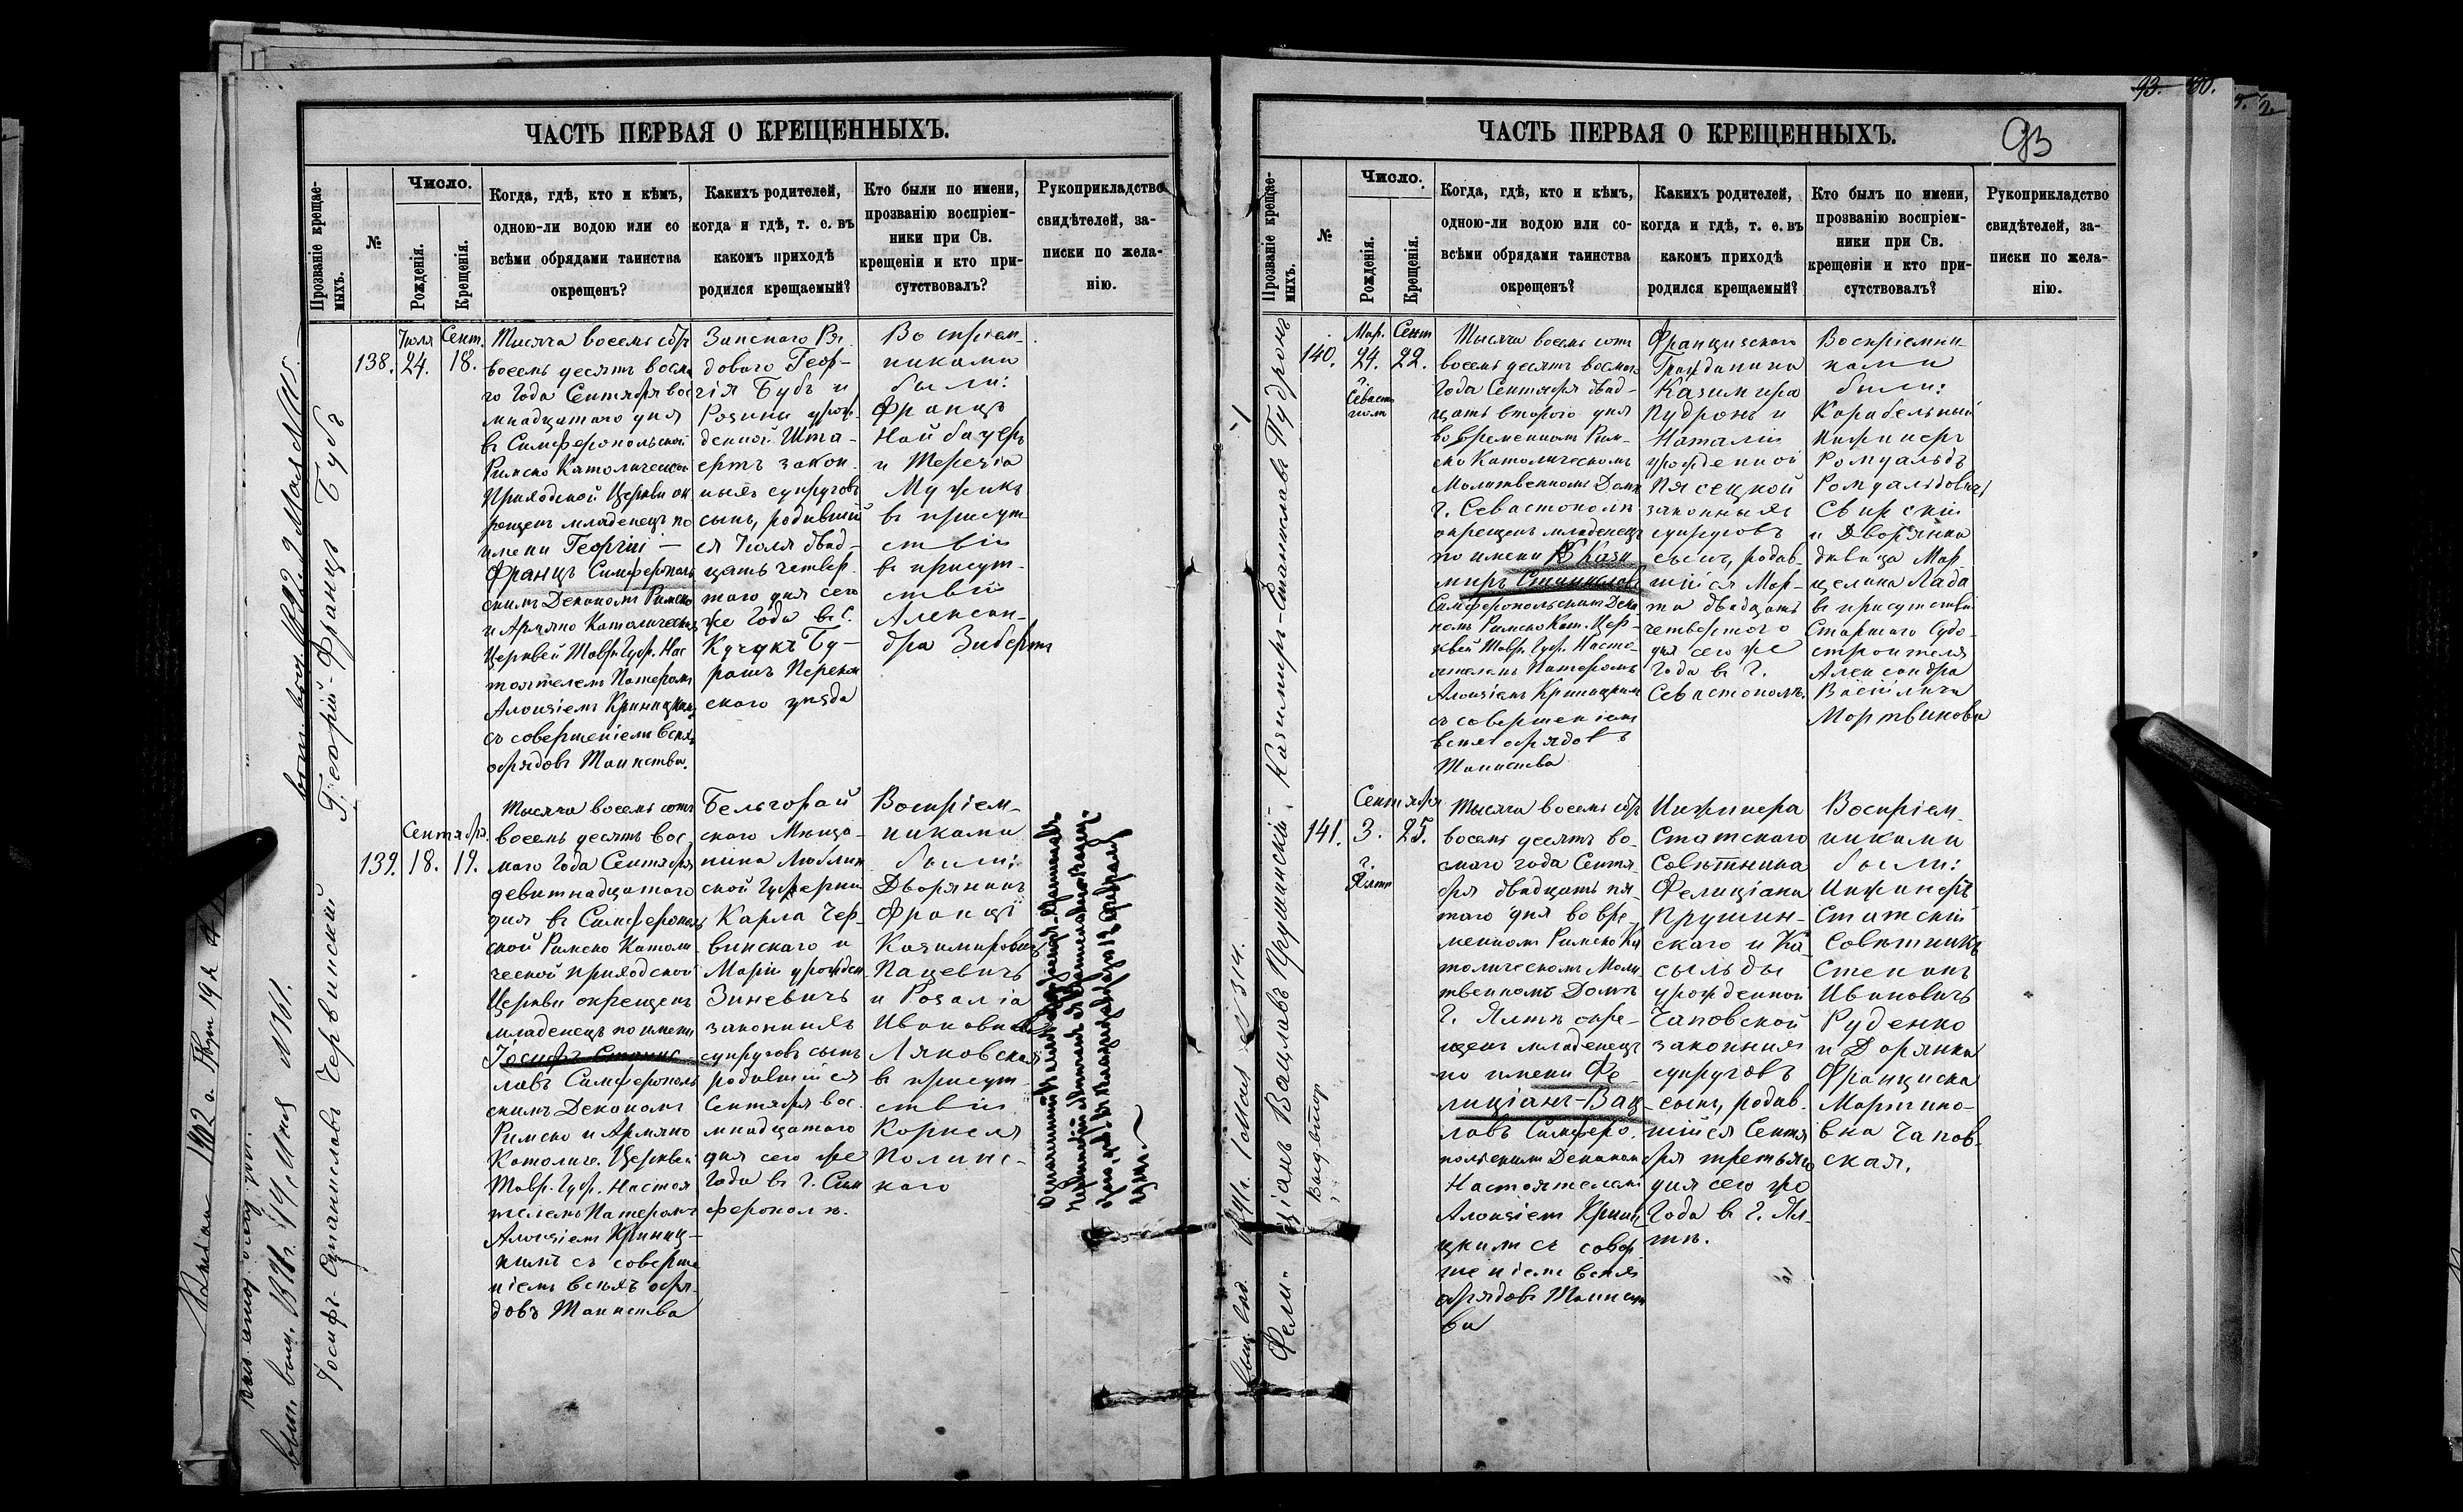 ЧАСТЬ ПЕРВАЯ О КРЕЩЕННЫХЪ.
Прозваніе крещае-
мыхъ.
№
Число.
Рожденія.
Крещенія.
Когда, гдѣ, кто и кѣмъ,
одною-ли водою или со
всѣми обрядами таинства
окрещенъ?
Какихъ родителей,
когда и гдѣ, т. е. въ
какомъ приходѣ
родился крещаемый?
Кто были по имени,
прозванію воспріем-
ники при Св.
крещеніи и кто при-
сутствовалъ?
Рукоприкладство
свидѣтелей, за-
писки по жела-
нію.
Георгій-Францъ Бубъ
138.
Іюля
24.
Сент.
18.
Тысяча восемь сотъ
восемь десятъ восма
го Года Сентября вос
мнадцатаго дня
въ Симферопольской
Римско Католической
Приходской Церкви ок
рещенъ младенецъ по
имени Георгій —
Францъ Симферополь
скимъ Деканомъ Римско
и Армяно Католическихъ
Церквей Тавр. Губ. Нас
тоятелемъ Патеромъ
Алоизіемъ Криницкимъ
съ совершеніемъ всѣхъ
обрядовъ Таинства.
Запаснаго Ря
дового Геор-
гія Бубъ и
Розины урож
денной Шта-
ертъ закон
ныхъ супруговъ
сынъ, родившій
ся Іюля двад-
цать четвер
таго дня сего
же Года въ с.
Кучукъ Бу-
рашъ Перекоп
скаго уѣзда
Воспріем-
никами
были:
Францъ
Найбауеръ
и Терезія
Мужикъ
въ присут
ствіи
въ присут-
ствіи
Алексан-
дра Зибертъ
Іосифъ-Станиславъ Червинскій
139.
Сентября
18.
19.
Тысяча восемь сотъ
восемь десятъ вос-
маго Года Сентября
девятнадцатаго
дня въ Симферополь
ской Римско Католи
ческой Приходской
Церкви окрещенъ
младенецъ по имени
Іосифъ-Станис
лавъ Симферополь
скимъ Деканомъ
Римско и Армяно
Католич. Церквей
Тавр. Губ. Настоя
телемъ Патеромъ
Алоизіемъ Криниц-
кимъ съ соверше
ніемъ всѣхъ обря
довъ Таинства
Бельгорай
скаго Мѣща-
нина Люблин
ской Губерніи
Карла Чер-
винскаго и
Маріи урожден
Зиневичъ
законныхъ
супруговъ сынъ
родившійся
Сентября вос
мнадцатаго
дня сего же
Года въ г. Сим
ферополѣ.
Воспріем-
никами
были:
Дворянинъ
Францъ
Казимировичъ
Пацевичъ
и Розалія
Ивановна
Ляковская
въ присут-
ствіи
Корнеля
Полинс-
каго
ЧАСТЬ ПЕРВАЯ О КРЕЩЕННЫХЪ.
93
Прозваніе крещае-
мыхъ.
№
Число.
Рожденія.
Крещенія.
Когда, гдѣ, кто и кѣмъ,
одною-ли водою или со-
всѣми обрядами таинства
окрещенъ?
Какихъ родителей,
когда и гдѣ, т. е. въ
какомъ приходѣ
родился крещаемый?
Кто былъ по имени,
прозванію воспріем-
ники при Св.
крещеніи и кто при-
сутствовалъ?
Рукоприкладство
свидѣтелей, за-
писки по жела-
нію.
Казимиръ-Станиславъ Пудронъ
140.
Мар.
24.
г.
Севасто
пол
Сент
22.
Тысяча восемь сотъ
восемь десятъ восмаго
Года Сентября двад-
цать второго дня
во временномъ Рим-
ско Католическомъ
Молитвенномъ Домѣ
г. Севастополѣ
окрещенъ младенецъ
по имени Кази
миръ Станиславъ
Симферопольскимъ Дека
номъ Римско Кат. Цер-
квей Тавр. Губ. Насто-
ятелемъ Патеромъ
Алоизіемъ Криницкимъ
съ совершеніемъ
всѣхъ обрядовъ
Таинства
Французскаго
Гражданина
Казимира
Пудронъ и
Наталіи
урожденной
Пясецкой
законныхъ
супруговъ
сынъ, родив-
шійся Мар-
та двадцать
четвертого
дня сего же
Года въ г.
Севастополѣ.
Воспріемни-
ками
были:
Карабельный
Инженеръ
Ромуальдъ
Ромуальдовичъ
Свирскій
и Дворянка
дѣвица Мар
целина Лада
въ присутствіи
Старшаго Судо-
строителя
Александра
Васілича
Мортвинова
Фелиціанъ Вацлавъ Прушинскій.
141.
Сентября
3.
г.
Ялтѣ
25.
Тысяча восемь сотъ
восемь десятъ во-
смаго года Сентя-
бря двадцать пя-
таго дня во вре-
менномъ Римско Ка
толическомъ Моли
твенномъ Домѣ
г. Ялтѣ окре-
щенъ младенецъ
по имени Фе-
лиціанъ-Вац-
лавъ Симферо-
польскимъ Деканом
Настоятелемъ
Алоизіем Криниц-
цкимъ съ совер
шеніемъ всѣхъ
обрядовъ Таинст
ва
Инжинера
Статскаго
Совѣтника
Фелиціана
Прушин-
скаго и Ка
сыльды
урожденной
Чаповской
законныхъ
супруговъ
сынъ, родив-
шійся Сентя
бря третьяго
дня сего же
Года въ г. Ял-
тѣ.
Воспріем-
никами
были:
Инженеръ
Статскій
Совѣтникъ
Степанъ
Ивановичъ
Руденко
и Дорянка
Франциска
Мартино-
вна Чапов-
ская.